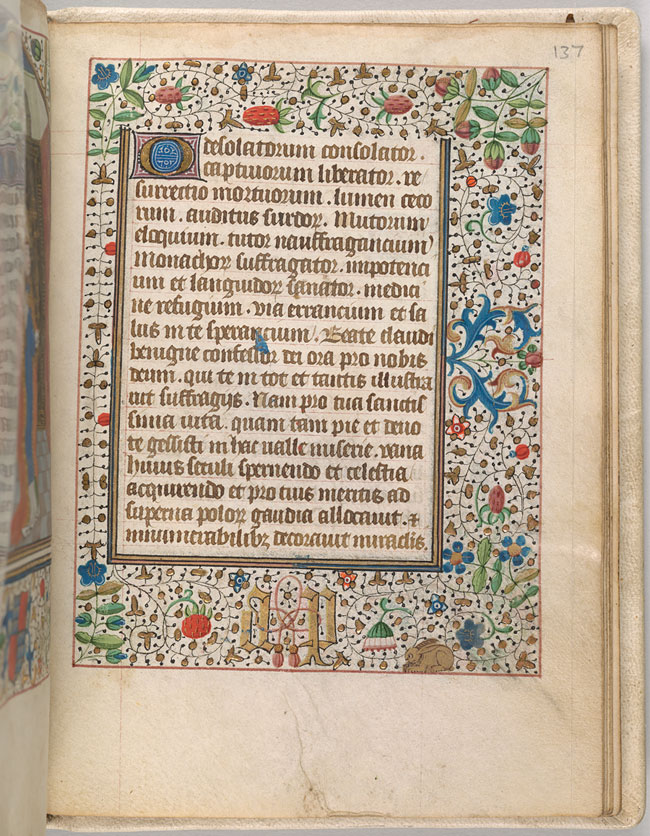 137
O desolatorum consolator .
captiuorum liberator . re
surrectio mortuorum . lumen ceco
rum . auditus surdoꝝ . Mutorum
eloquium . tutor nauffragancium
Monachoꝝ suffragator . impotenci
um et languidoꝝ sanator . medici
ne refugium . via errancium et sa
lus in te sperancium . Beate claudi
benigne confessor dei ora pro nobis
deum . qui te in tot et tantis illustra
uit suffragijs . Nam pro tua sanctis
sima uita . quam tam pie et deuo
te gessisti in hac ualle miserie . uana
huius seculi spernendo et celestia
acquirendo et pro tuis meritis ad
superna poloꝝ gaudia allocauit . ⁊
innumerabilibꝫ decorauit miraclis